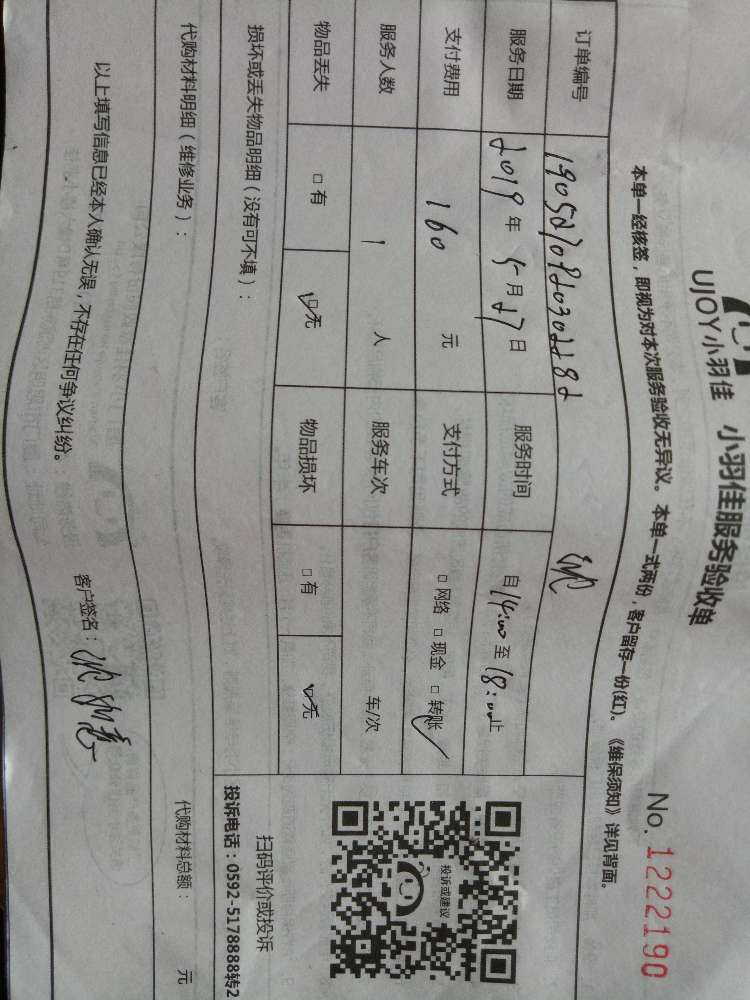 UJOY小羽佳 小羽佳服务验收单
No. 1222190
本单一经核签，即视为对本次服务验收无异议。本单一式两份，客户留存一份(红)。《维保须知》详见背面。
订单编号
服务日期 2019 年 5 月 27 日 服务时间 自 14:00 至 18:00 止
支付费用 160 元 支付方式 □ 网络 □ 现金 □ 转账 ✓
服务人数 1 人 服务车次 车/次
物品丢失 □ 有 ☑ 无 物品损坏 □ 有 ☑ 无
投诉或建议
扫码评价或投诉
投诉电话：0592-5178888转2
损坏或丢失物品明细（没有可不填）：
代购材料明细（维修业务）： 代购材料总额： 元
以上填写信息已经本人确认无误，不存在任何争议纠纷。
客户签名：